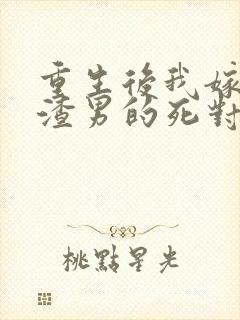 重生後我嫁
渣男的死對
桃點星光